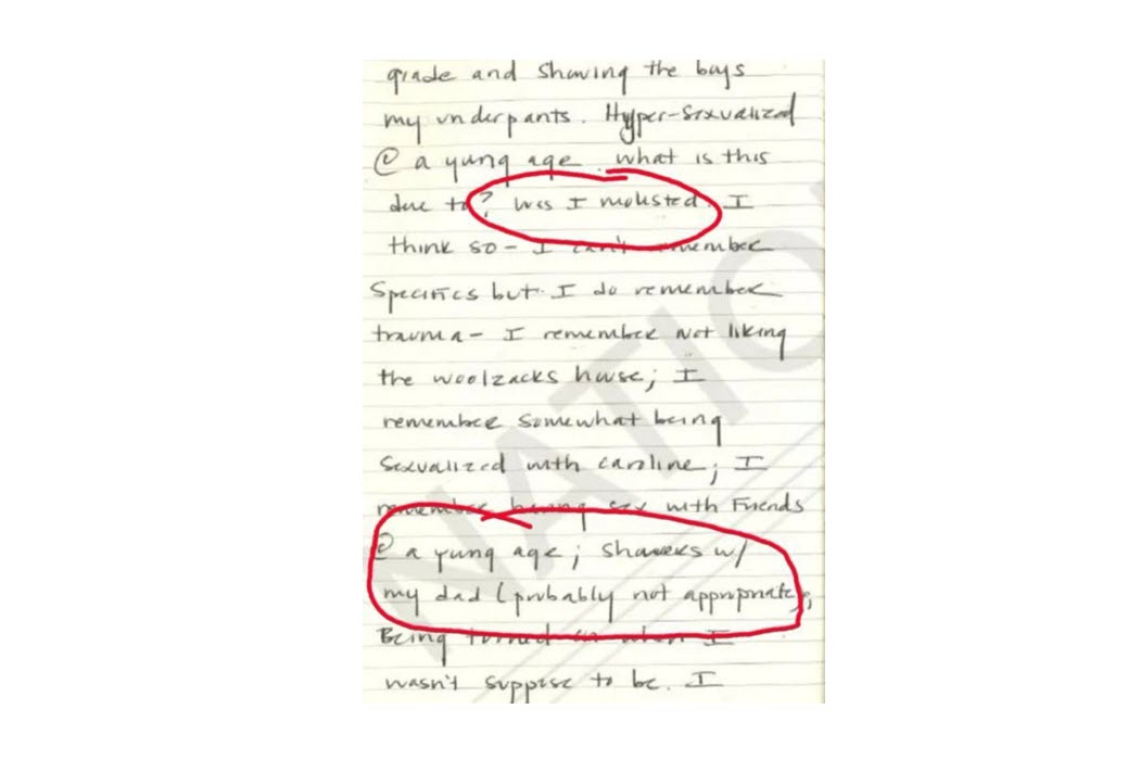 grade and showing the boys
my underpants. Hyper-sexualized
@ a yung age. what is this
due to? Was I molested. I
think so - I can't remember
specifics but I do remember
trauma - I remember not liking
the woolzacks house; I
remember somewhat being
sexualized with caroline; I
remember having sex with Friends
@ a yung age; showers w/
my dad (probably not appropriate);
Being turned on when I
wasn't suppose to be. I
NATIO